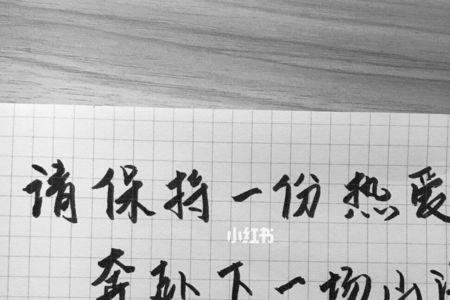 请保持一份热爱
小红书
奔赴下一场山